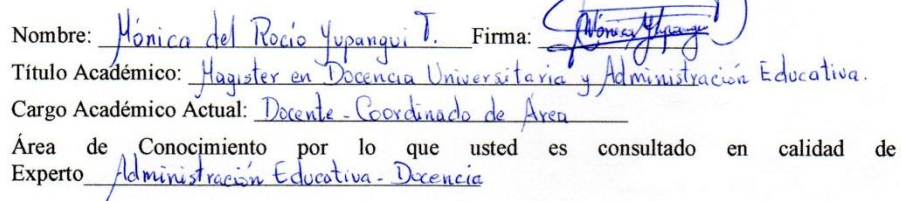 Nombre: Mónica del Rocío Yupangui T. Firma: Mónica Yupangui
Título Académico: Magister en Docencia Universitaria y Administración Educativa.
Cargo Académico Actual: Docente - Coordinado de Area
Área de Conocimiento por lo que usted es consultado en calidad de
Experto Administración Educativa - Docencia